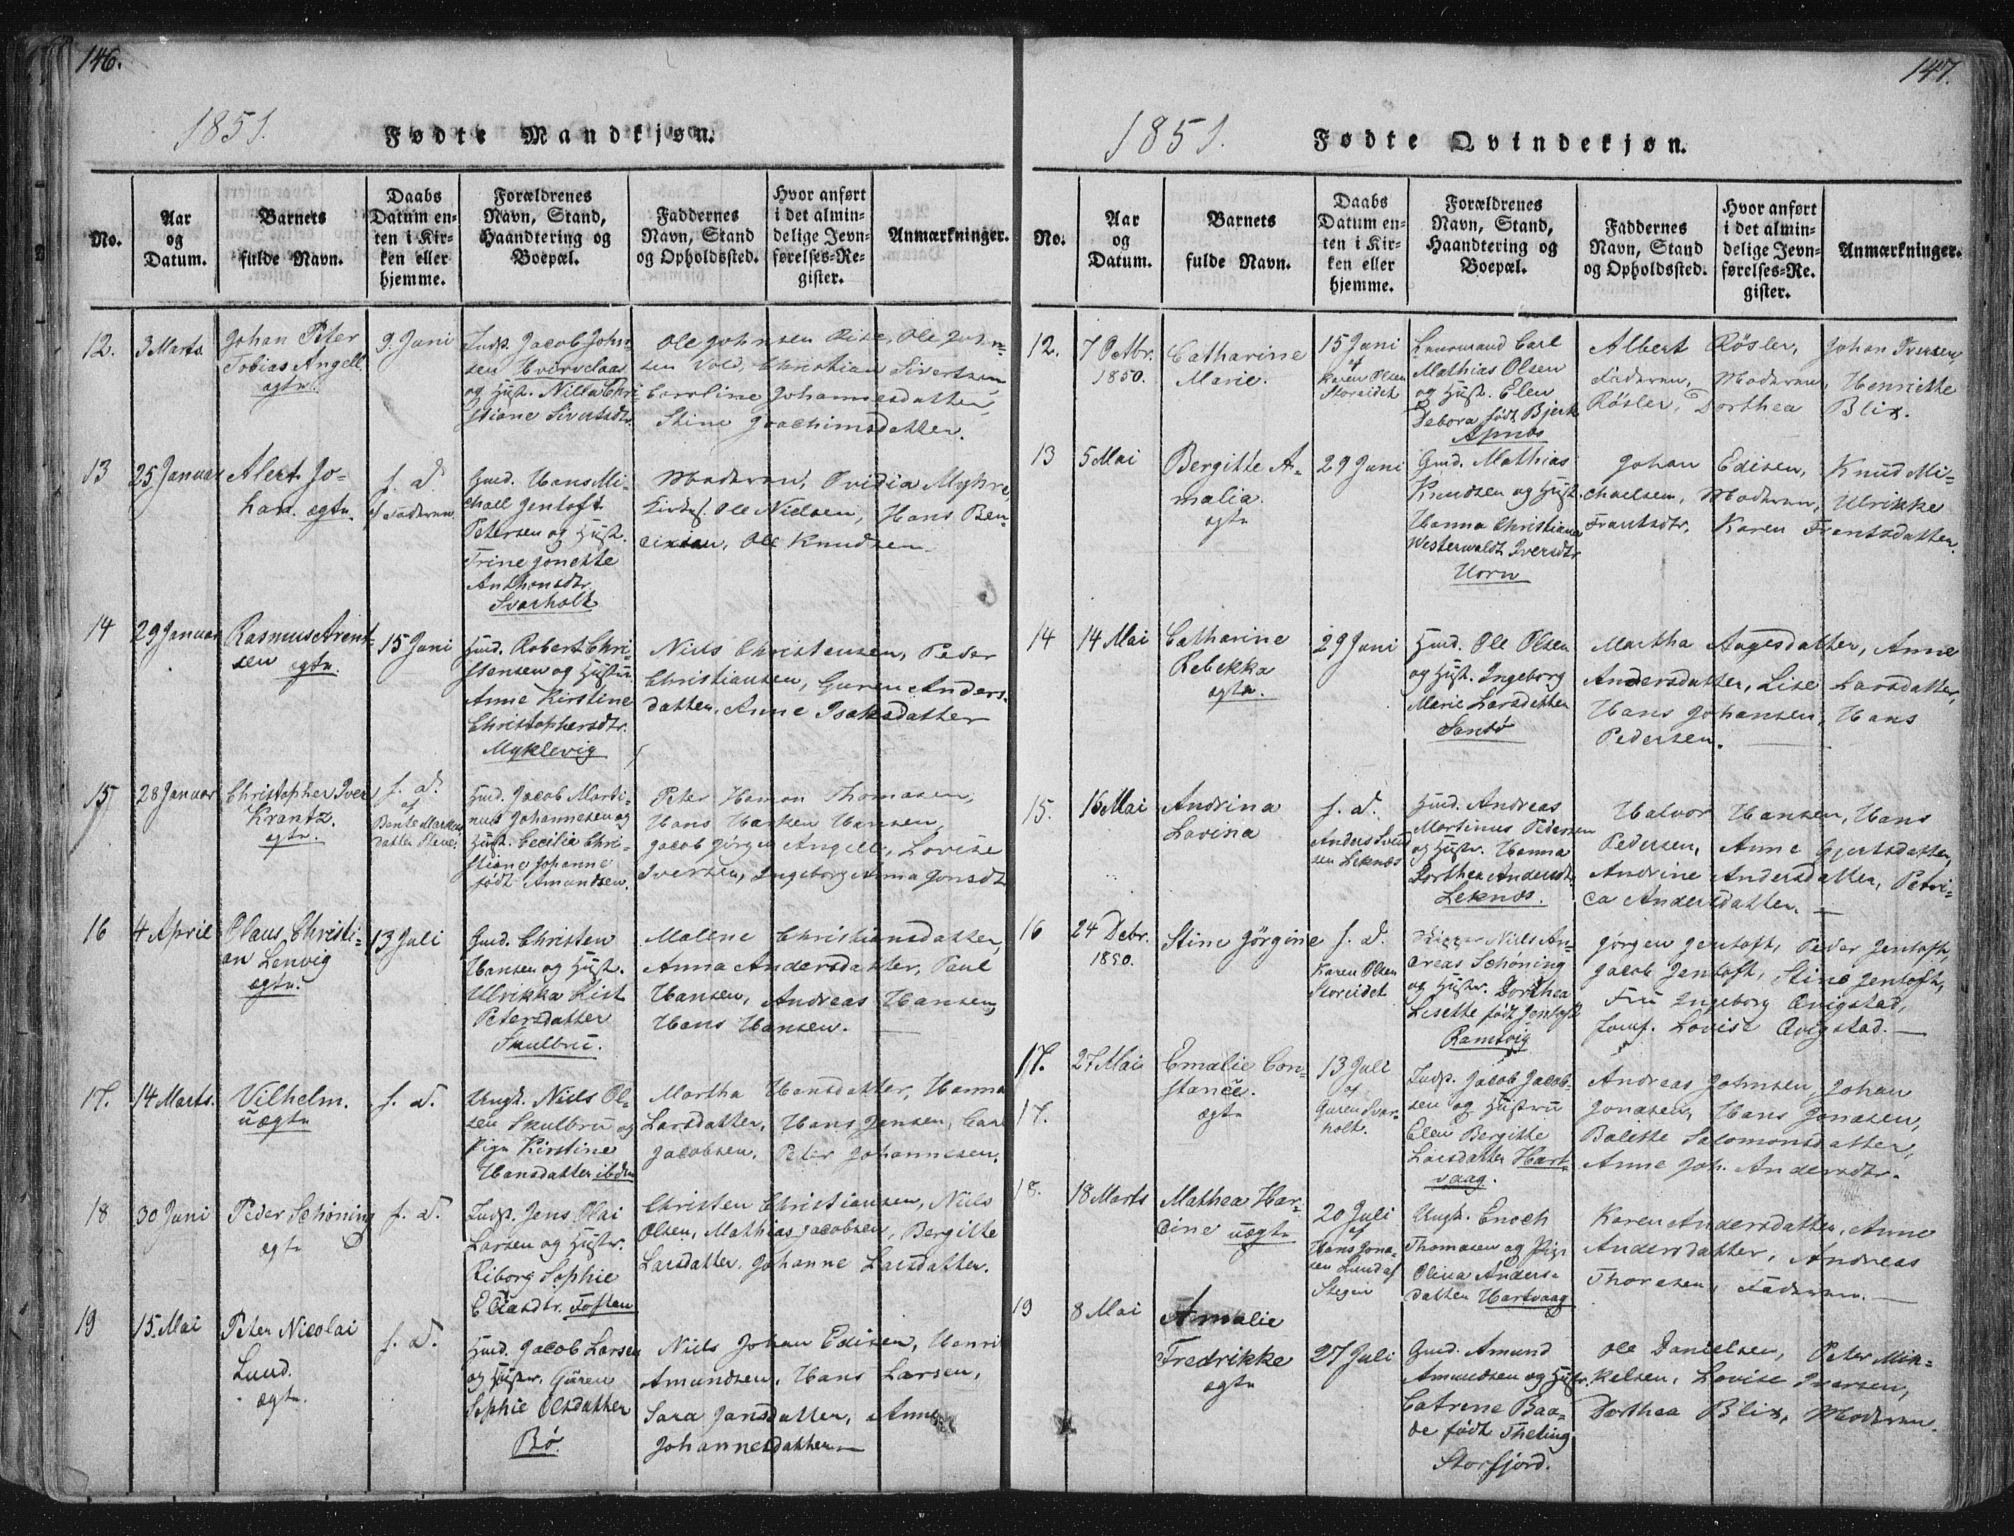 146.
1851.
Fødte Mandkjøn.
No.
Aar
og
Datum.
Barnets
fulde Navn.
Daabs
Datum en-
ten i Kir-
ken eller
hjemme.
Forældrenes
Navn, Stand,
Haandtering og
Boepæl.
Faddernes
Navn, Stand
og Opholdssted.
Hvor anført
i det almin-
delige Jevn-
førelses-Re-
gister.
Anmærkninger.
12.
3 Marts
Johan Peter
Tobias Angell
ægte.
9 Juni
Indp. Jacob John-
sen Hvervelaas
og Hust. Nilla Chri
stiane Sivertsdtr
Ole Johnsen Rise, Ole John-
sen Vold, Christian Sivertsen
Caroline Johannesdatter,
Stine Joachimsdatter.
13
25 Januar
Alert Jo-
han. ægte.
s. d.
af Faderen
Gmd. Hans Mi-
chall Jentoft
Petersen og Hust.
Trine Jonette
Anthonsdtr.
Svarholt
Moderen, Ovidia Myhre,
Kirkes. Ole Nielsen, Hans Ben-
, Ole Knudsen
14
29 Januar
Rasmus Arent-
sen ægte.
15 Juni
Hmd. Robert Chri-
stensen og Hustru
Anne Kirstine
Christophersdtr.
Myklevig
Niels Christensen, Peder
Christiansen, Guren Anders-
datter, Anne Isaksdatter
15
28 Januar
Christopher Iver
Krantz.
ægte.
s. d.
af
Bente Markus
datter Stene.
Hmd. Jacob Marti-
nus Johannesen og
Hust. Cecilia Chri-
stiane Johanne
født Amundsen.
Peter Hamon Thomasen,
Hans Harken Hansen
Jacob Jørgen Angell, Lovise
Iversen, Ingeborg Anna Jonsdtr
16
4 April
Olaus Christi-
an Lenvig
ægte.
13 Juli
Gmd. Christen
Hansen og Hust.
Ulrikka Kist
Petersdatter
Skulbru.
Malene Christiansdatter,
Anna Andersdatter, Paul
Hansen, Andreas Hansen,
Hans Hansen.
17.
14 Marts.
Vilhelm.
uægte
s. d.
Ungk. Niels Ol-
sen Skulbru og
Pige Kirstine
Hansdatter ibdm
Martha Hansdatter, Hanna
Larsdatter, Hans Jensen, Carl
Jacobsen, Peter Johannesen.
18
30 Juni
Peder Schøning
ægte
s. d.
Indp. Jens Olai
Larsen og Hustr.
Riborg Sophie
Eliasdtr. Toften
Christen Christiansen, Niels
Olsen, Mathias Jacobsen, Bergitte
Larsdatter, Johanne Larsdatter.
19
15. Mai
Peter Nicolai
Lund.
ægte.
s. d.
Hmd. Jacob Larsen
og Hustr. Guren
Sophie Olsdatter
Bø.
Niels Johan Edisen, Henri
Amundsen, Hans Larsen,
Sara Jansdatter, Anne
Johannesdatter
147.
1851.
Fødte Qvindekjøn.
No.
Aar
og
Datum.
Barnets
fulde Navn.
Daabs
Datum en-
ten i Kir-
ken eller
hjemme.
Forældrenes
Navn, Stand,
Haandtering og
Boepæl.
Faddernes
Navn, Stand
og Opholdssted.
Hvor anført
i det almin-
delige Jevn-
førelses-Re-
gister.
Anmærkninger.
12.
7 Octbr.
1850.
Catharine
Marie.
15 Juni
af
Karen Olsen
Storeidet
Lensmand Carl
Mathias Olsen
og Hust. Elen
Debora født Bjerk
Alpnæs
Albert Røsler, Johan Iversen
Faderen, Moderen, Henriette
Røsler, Dorthea Blix.
13
5 Mai
Bergitte A-
malia.
ægte
29 Juni
Gmd. Mathias
Knudsen og Hust.
Hanna Christiana
Westerwaldt Iversdtr
Horn
Johan Edisen, Knud Mi-
chaelsen, Moderen, Ulrikke
Frantsdtr, Karen Frantsdatter.
14
14 Mai
Catharine
Rebekka
ægte.
29 Juni
Hmd. Ole Olsen
og Hust. Ingeborg
Marie Larsdatter
Sandø
Martha Aagesdatter, Anne
Andersdatter, Lise Larsdatter,
Hans Johansen, Hans
Pedersen.
15.
16 Mai
Andrina
Lavina
s. d.
Anders Svend
sen Leknæs
Hmd. Andreas
Martinus Pedersen
og Hustr. Hanna
Dorthea Andersdtr
Leknæs.
Halvor Hansen, Hans
Pedersen, Anne Gjertsdatter,
Andrine Andersdatter, Petri-
ca Andersdatter.
16
24 Debr.
1850.
Stine Jørgine
s. d.
Karen Olsen
Storeidet
Niels An-
dreas Schøning
og Hustr. Dorthea
Lisette født Jentoft
Ramsvig
Jørgen Jentoft, Peder Jentoft,
Jacob Jentoft, Stine Jentoft,
Fru Ingeborg Qvigstad,
Jomf. Lovise Qvigstad.
17.
27 Mai
Emalie Con-
stance.
ægte
13 Juli
af
Guren Svar-
holt.
Indp. Jacob Jacob-
sen og Hustru
Elen Bergitte
Larsdatter Hart-
vaag.
Andreas Johnsen, Johan
Jonasen, Hans Jonasen,
Balette Salomonsdatter,
Anne Joh. Andersdtr.
17.
18.
18 Marts
Mathea Har-
dine uægte
20 Juli
af
Hans Jona-
sen Lund af
Stegen
Ungk. Enoch
Thomasen og Pige
Olina Anders-
datter Hartvaag
Karen Andersdatter, Anne
Andersdatter, Andreas
Thoresen, Faderen.
19
8 Mai
Amalie
Fredrikke
ægte
27 Juli
Gmd. Amund
Amundsen og Hustr.
Catrene Baa-
de født Theting
Storfjord.
Ole Danielsen, Peter Mik-
kelsen, Lovise Iversen,
Dorthea Blix, Moderen.